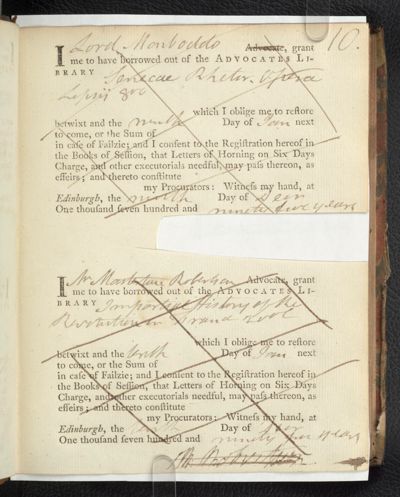 10.
I Lord Monboddo Advocate, grant
me to have borrowed out of the ADVOCATES LI-
BRARY Senecae Rhetor. Opera
Lepsij 8vo
which I oblige me to reſtore
betwixt and the ninth Day of Jan next
to come, or the Sum of
in caſe of Failzie; and I conſent to the Regiſtration hereof in
the Books of Seſſion, that Letters of Horning on Six Days
Charge, and other executorials needful, may paſs thereon, as
effeirs; and thereto conſtitute
my Procurators: Witneſs my hand, at
Edinburgh, the ninth Day of
One thouſand ſeven hundred and ninety five years
I Mr Robertson Advocate, grant
me to have borrowed out of the ADVOCATES LI-
BRARY Impartial History of the
Revolution in 2 vol
which I oblige me to reſtore
betwixt and the tenth Day of Jan next
to come, or the Sum of
in caſe of Failzie; and I conſent to the Regiſtration hereof in
the Books of Seſſion, that Letters of Horning on Six Days
Charge, and other executorials needful, may paſs thereon, as
effeirs; and thereto conſtitute
my Procurators: Witneſs my hand, at
Edinburgh, the Day of
One thouſand ſeven hundred and ninety five years